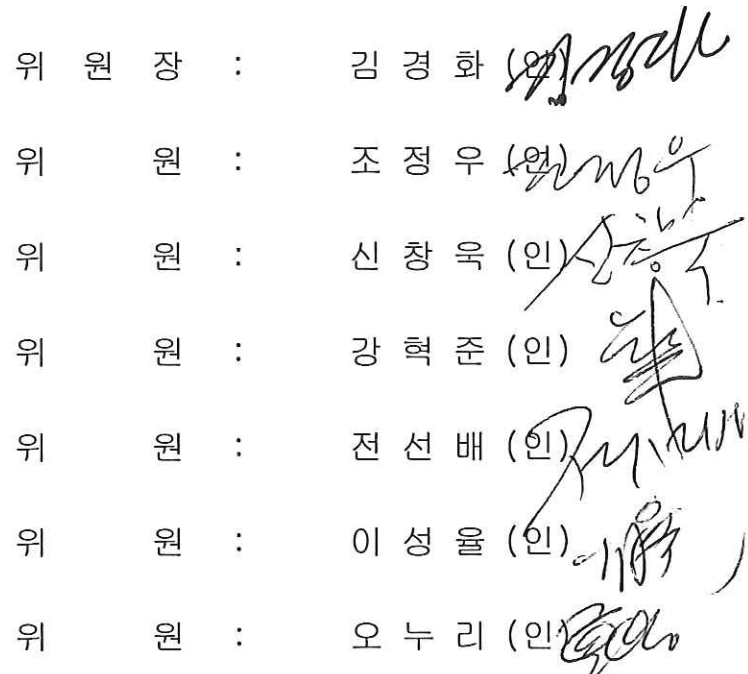 위 원 장 : 김 경 화 (인)
위 원 : 조 정 우 (인)
위 원 : 신 창 욱 (인) 신창욱
위 원 : 강 혁 준 (인)
위 원 : 전 선 배 (인)
위 원 : 이 성 율 (인)
위 원 : 오 누 리 (인)